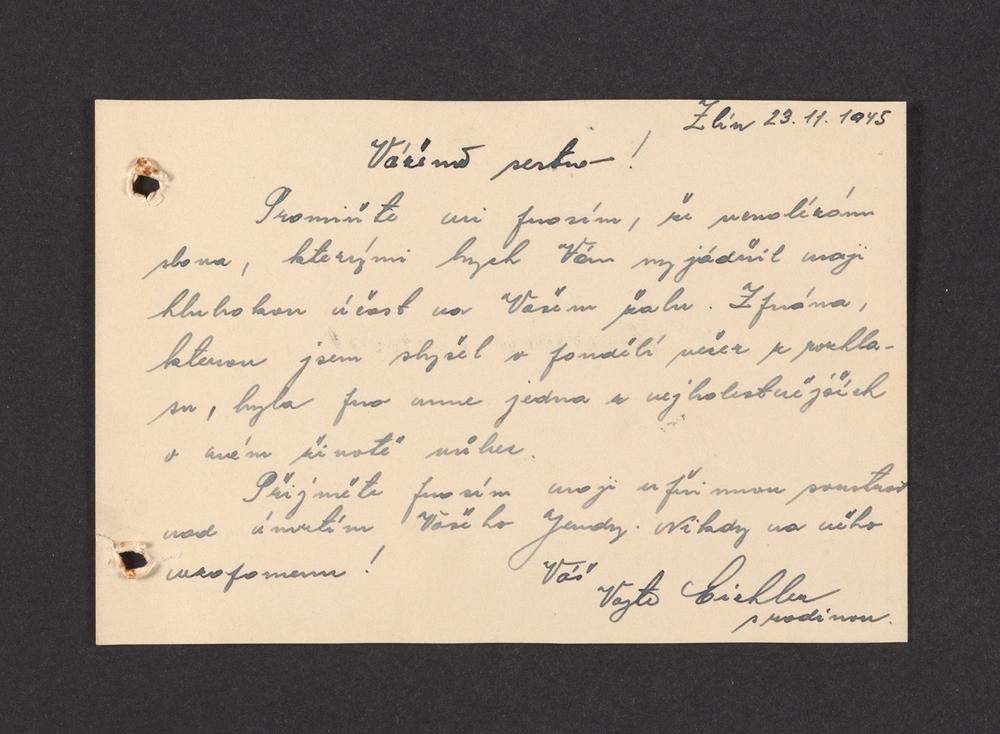 Zlín 23. 11. 1945
Vážená sestro!
Promiňte mi prosím, že nenalézám
slova, kterými bych Vám vyjádřil moji
hlubokou účast na Vašem žalu. Zpráva,
kterou jsem slyšel v pondělí večer z rozhla-
su, byla pro mne jedna z nejbolestnějších
v mém životě vůbec.
Přijměte prosím moji upřímnou soustrast
nad úmrtím Vašeho Jendy. Nikdy na něho
nezapomenu!
Váš
Vojta Eichler
s rodinou.